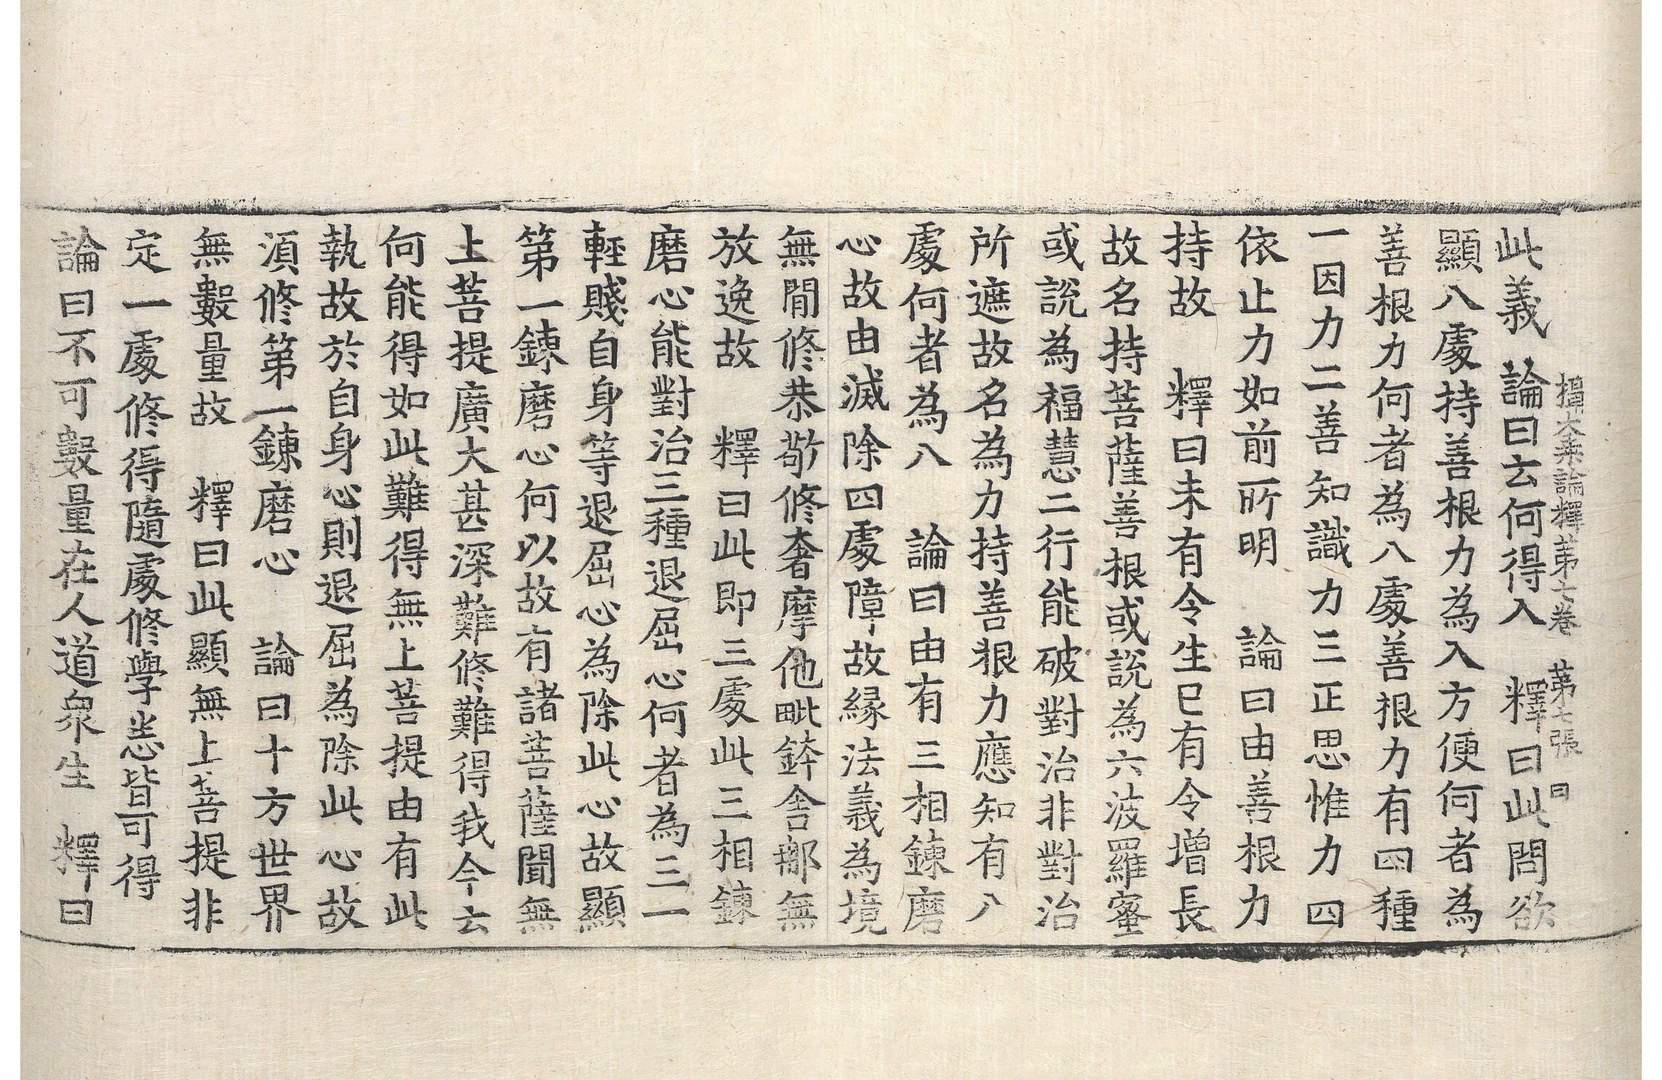 攝大乘論釋第七卷 第七張 曰
此義 論曰云何得入 釋曰此問欲
顯八處持善根力為入方便何者為
善根力何者為八處善根力有四種
一因力二善知識力三正思惟力四
依止力如前所明 論曰由善根力
持故 釋曰未有令生已有令增長
故名持菩薩善根或說為六波羅蜜
或說為福慧二行能破對治非對治
所遮故名為力持善根力應知有八
處何者為八 論曰由有三相鍊磨
心故由滅除四處障故緣法義為境
無間修恭敬修奢摩他毗鉢舍那無
放逸故 釋曰此即三處此三相鍊
磨心能對治三種退屈心何者為三一
輕賤自身等退屈心為除此心故顯
第一鍊磨心何以故有諸菩薩聞無
上菩提廣大甚深難修難得我今云
何能得如此難得無上菩提由有此
執故於自身心則退屈為除此心故
須修第一鍊磨心 論曰十方世界
無數量故 釋曰此顯無上菩提非
定一處修得隨處修學悉皆可得
論曰不可數量在人道衆生 釋曰